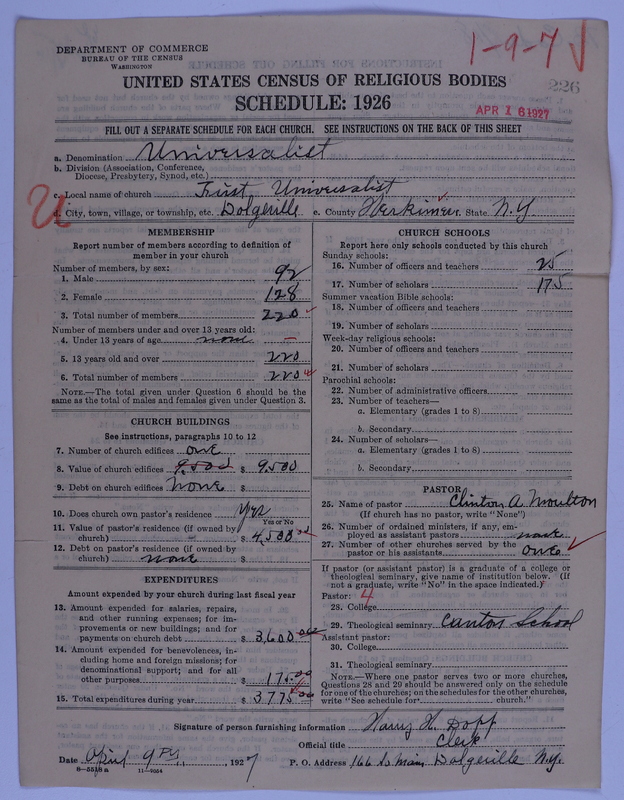 DEPARTMENT OF COMMERCE
BUREAU OF THE CENSUS
WASHINGTON
1-9-7
226
UNITED STATES CENSUS OF RELIGIOUS BODIES
SCHEDULE: 1926
APR 16 1927
FILL OUT A SEPARATE SCHEDULE FOR EACH CHURCH. SEE INSTRUCTIONS ON THE BACK OF THIS SHEET
a. Denomination Universalist
b. Division (Association, Conference,
Diocese, Presbytery, Synod, etc.)
c. Local name of church First Universalist
U
d. City, town, village, or township, etc. Dolgeville e. County Herkimer State N.Y.
MEMBERSHIP
Report number of members according to definition of
member in your church
Number of members, by sex:
1. Male 92
2. Female 128
3. Total number of members 220
Number of members under and over 13 years old:
4. Under 13 years of age none –
5. 13 years old and over 220
6. Total number of members 220
NOTE.—The total given under Question 6 should be the
same as the total of males and females given under Question 3.
CHURCH BUILDINGS
See instructions, paragraphs 10 to 12
7. Number of church edifices one
8. Value of church edifices 9,500 $ 9,500
9. Debt on church edifices None $
10. Does church own pastor's residence Yes
Yes or No
11. Value of pastor's residence (if owned by
church) $ 4,500 00
12. Debt on pastor's residence (if owned by
church) none $
EXPENDITURES
Amount expended by your church during last fiscal year
13. Amount expended for salaries, repairs,
and other running expenses; for im-
provements or new buildings; and for
payments on church debt $ 3,600 00
14. Amount expended for benevolences, in-
cluding home and foreign missions; for
denominational support; and for all
other purposes $ 175.00
15. Total expenditures during year $ 3775 00
CHURCH SCHOOLS
Report here only schools conducted by this church
Sunday schools:
16. Number of officers and teachers 25
17. Number of scholars 175
Summer vacation Bible schools:
18. Number of officers and teachers
19. Number of scholars
Week-day religious schools:
20. Number of officers and teachers
21. Number of scholars
Parochial schools:
22. Number of administrative officers
23. Number of teachers—
a. Elementary (grades 1 to 8)
b. Secondary
24. Number of scholars—
a. Elementary (grades 1 to 8)
b. Secondary
PASTOR
25. Name of pastor Clinton A Moulton
(If church has no pastor, write "None")
26. Number of ordained ministers, if any, em-
ployed as assistant pastors none
27. Number of other churches served by the
pastor or his assistants one
If pastor (or assistant pastor) is a graduate of a college or
theological seminary, give name of institution below. (If
not a graduate, write "No" in the space indicated.)
Pastor: 4
28. College
29. Theological seminary Canton School
Assistant pastor:
30. College
31. Theological seminary
NOTE.—Where one pastor serves two or more churches,
Questions 28 and 29 should be answered only on the schedule
for one of the churches; on the schedules for the other churches,
write "See schedule for church."
Signature of person furnishing information Harry H. Dopp
Official title Clerk
Date April 9th, 1927 P. O. Address 166 So Main Dolgeville N.Y.
8—5518 a 11—9054